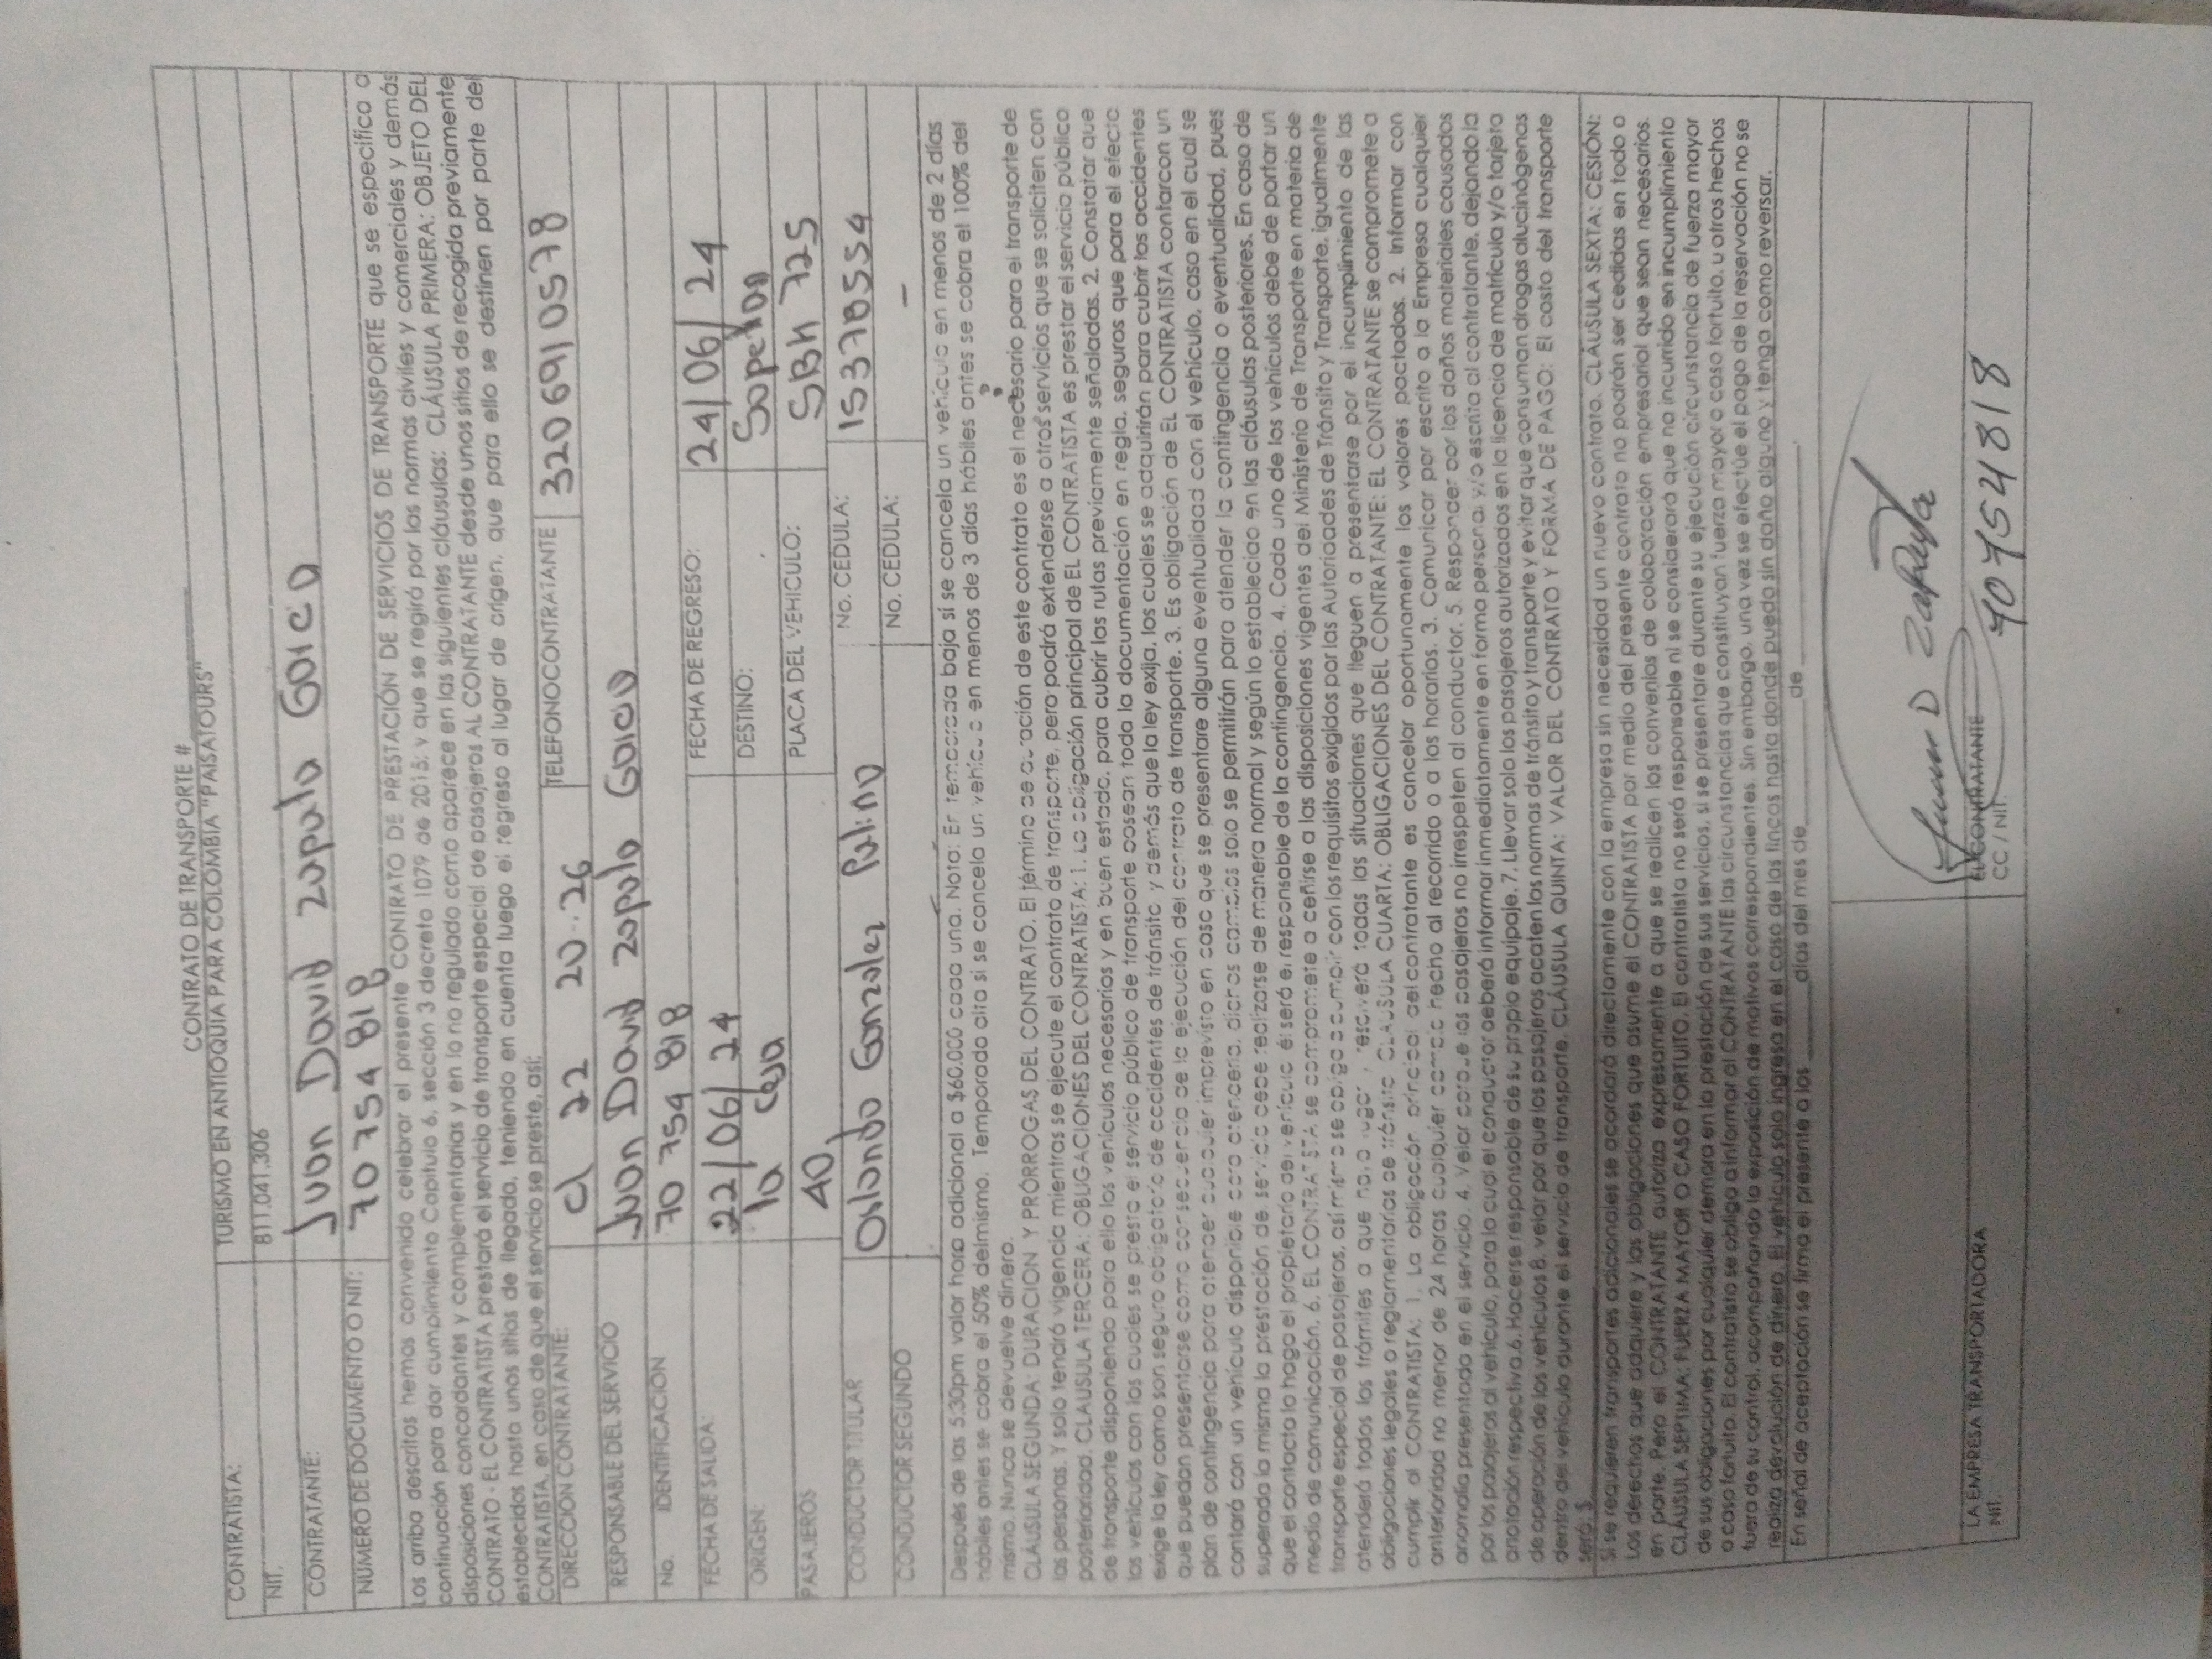 CONTRATO DE TRANSPORTE #
CONTRATISTA: TURISMO EN ANTIOQUIA PARA COLOMBIA "PAISATOURS"
NIT. 811.041.306
CONTRATANTE: Juan David Zapata
NÚMERO DE DOCUMENTO O NIT: 70 754 818
Los arriba descritos hemos convenido celebrar el presente CONTRATO DE PRESTACIÓN DE SERVICIOS DE TRANSPORTE que se especifica a
continuación para dar cumplimiento Capítulo 6, sección 3 decreto 1079 de 2015; y que se regirá por las normas civiles y comerciales y demás
disposiciones concordantes y complementarias y en lo no regulado como aparece en las siguientes cláusulas: CLÁUSULA PRIMERA: OBJETO DEL
CONTRATO - EL CONTRATISTA prestará el servicio de transporte especial de pasajeros AL CONTRATANTE desde unos sitios de recogida previamente
establecidos hasta unos sitios de llegada, teniendo en cuenta luego el regreso al lugar de origen, que para ello se destinen por parte del
CONTRATISTA, en caso de que el servicio se preste, así:
DIRECCIÓN CONTRATANTE: cl 22 20-26 TELEFONOCONTRATANTE 3206910578
RESPONSABLE DEL SERVICIO Juan David Zapata
No. IDENTIFICACION 70 754 818
FECHA DE SALIDA: 22/06/24 FECHA DE REGRESO: 24/06/24
ORIGEN: la Ceja DESTINO:
PASAJEROS 40 PLACA DEL VEHICULO: 725
CONDUCTOR TITULAR Gonzalez No. CEDULA: 15378554
CONDUCTOR SEGUNDO No. CEDULA: -
Después de las 5:30pm valor hora adicional a $60.000 cada una. Nota: En temporada baja si se cancela un vehículo en menos de 2 días
hábiles antes se cobra el 50% del mismo. Temporada alta si se cancela un vehículo en menos de 3 días hábiles antes se cobra el 100% del
mismo. Nunca se devuelve dinero.
CLÁUSULA SEGUNDA: DURACION Y PRÓRROGAS DEL CONTRATO. El término de duración de este contrato es el necesario para el transporte de
las personas. Y solo tendrá vigencia mientras se ejecute el contrato de transporte, pero podrá extenderse a otros servicios que se soliciten con
posterioridad. CLAUSULA TERCERA: OBLIGACIONES DEL CONTRATISTA: 1. La obligación principal de EL CONTRATISTA es prestar el servicio público
de transporte disponiendo para ello los vehículos necesarios y en buen estado, para cubrir las rutas previamente señaladas. 2. Constatar que
los vehículos con los cuales se presta el servicio público de transporte posean toda la documentación en regla, seguros que para el efecto
exige la ley como son seguro obligatorio de accidentes de tránsito y demás que la ley exija, los cuales se adquirirán para cubrir los accidentes
que puedan presentarse como consecuencia de la ejecución del contrato de transporte. 3. Es obligación de EL CONTRATISTA contar con un
plan de contingencia para atender cualquier imprevisto en caso que se presentare alguna eventualidad con el vehículo, caso en el cual se
contará con un vehículo disponible para atenderla, dichos cambios solo se permitirán para atender la contingencia o eventualidad, pues
superada la misma la prestación de servicio debe realizarse de manera normal y según lo establecido en las cláusulas posteriores. En caso de
que el contacto lo haga el propietario del vehículo él será el responsable de la contingencia. 4. Cada uno de los vehículos debe de portar un
medio de comunicación. 6. EL CONTRATISTA se compromete a ceñirse a las disposiciones vigentes del Ministerio de Transporte en materia de
transporte especial de pasajeros, así mismo se obliga a cumplir con los requisitos exigidos por las Autoridades de Tránsito y Transporte, igualmente
atenderá todos los trámites a que haya lugar y resolverá todas las situaciones que lleguen a presentarse por el incumplimiento de las
obligaciones legales o reglamentarias de tránsito. CLAUSULA CUARTA: OBLIGACIONES DEL CONTRATANTE: EL CONTRATANTE se compromete a
cumplir al CONTRATISTA: 1. La obligación principal del contratante es cancelar oportunamente los valores pactados. 2. Informar con
anterioridad no menor de 24 horas cualquier cambio hecho al recorrido o a los horarios. 3. Comunicar por escrito a la Empresa cualquier
anomalía presentada en el servicio. 4. Velar porque los pasajeros no irrespeten al conductor. 5. Responder por los daños materiales causados
por los pasajeros al vehículo, para lo cual el conductor deberá informar inmediatamente en forma personal y/o escrita al contratante, dejando la
anotación respectiva.6. Hacerse responsable de su propio equipaje. 7. Llevar solo los pasajeros autorizados en la licencia de matrícula y/o tarjeta
de operación de los vehículos 8. velar por que los pasajeros acaten las normas de tránsito y transporte y evitar que consuman drogas alucinógenas
dentro del vehículo durante el servicio de transporte. CLÁUSULA QUINTA: VALOR DEL CONTRATO Y FORMA DE PAGO: El costo del transporte
será: $
Si se requieren transportes adicionales se acordará directamente con la empresa sin necesidad un nuevo contrato. CLÁUSULA SEXTA: CESIÓN:
Los derechos que adquiere y las obligaciones que asume el CONTRATISTA por medio del presente contrato no podrán ser cedidas en todo o
en parte. Pero el CONTRATANTE autoriza expresamente a que se realicen los convenios de colaboración empresarial que sean necesarios.
CLÁUSULA SEPTIMA: FUERZA MAYOR O CASO FORTUITO. El contratista no será responsable ni se considerará que ha incurrido en incumplimiento
de sus obligaciones por cualquier demora en la prestación de sus servicios, si se presentare durante su ejecución circunstancia de fuerza mayor
o caso fortuito. El contratista se obliga a informar al CONTRATANTE las circunstancias que constituyan fuerza mayor o caso fortuito, u otros hechos
fuera de su control, acompañando la exposición de motivos correspondientes. Sin embargo, una vez se efectúe el pago de la reservación no se
realiza devolución de dinero. El vehículo solo ingresa en el caso de las fincas hasta donde pueda sin daño alguno y tenga como reversar.
En señal de aceptación se firma el presente a los ______ días del mes de ____________ de ____________.
Juan D Zapata
LA EMPRESA TRANSPORTADORA EL CONTRATANTE
NIT. CC / NIT. 70754818